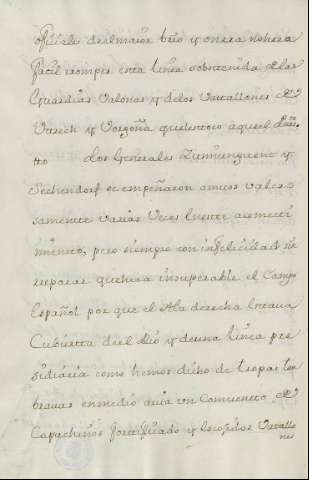 oficiales del maior brio y no era
facil romper esta linea sobstenida de las
Guardias Valonas y de los Vatallones de
Utrech y Vorgoña que les toco aquel
tto los Generales Zumiungent y
Sechendorf se empeñaron amvos valero
samentte varias Veces en este acometti
miento, pero siempre con infelicidad sin
reparar que hera insuperable el Campo
Español por que el Ala derecha estava
Cubierta del Rio y de una linea pre
sidiaria como hemos dicho de tropas tan
bravas en medio avia un Comvento de
Capuchinos forttificado y Escojidos Vatallo
nes